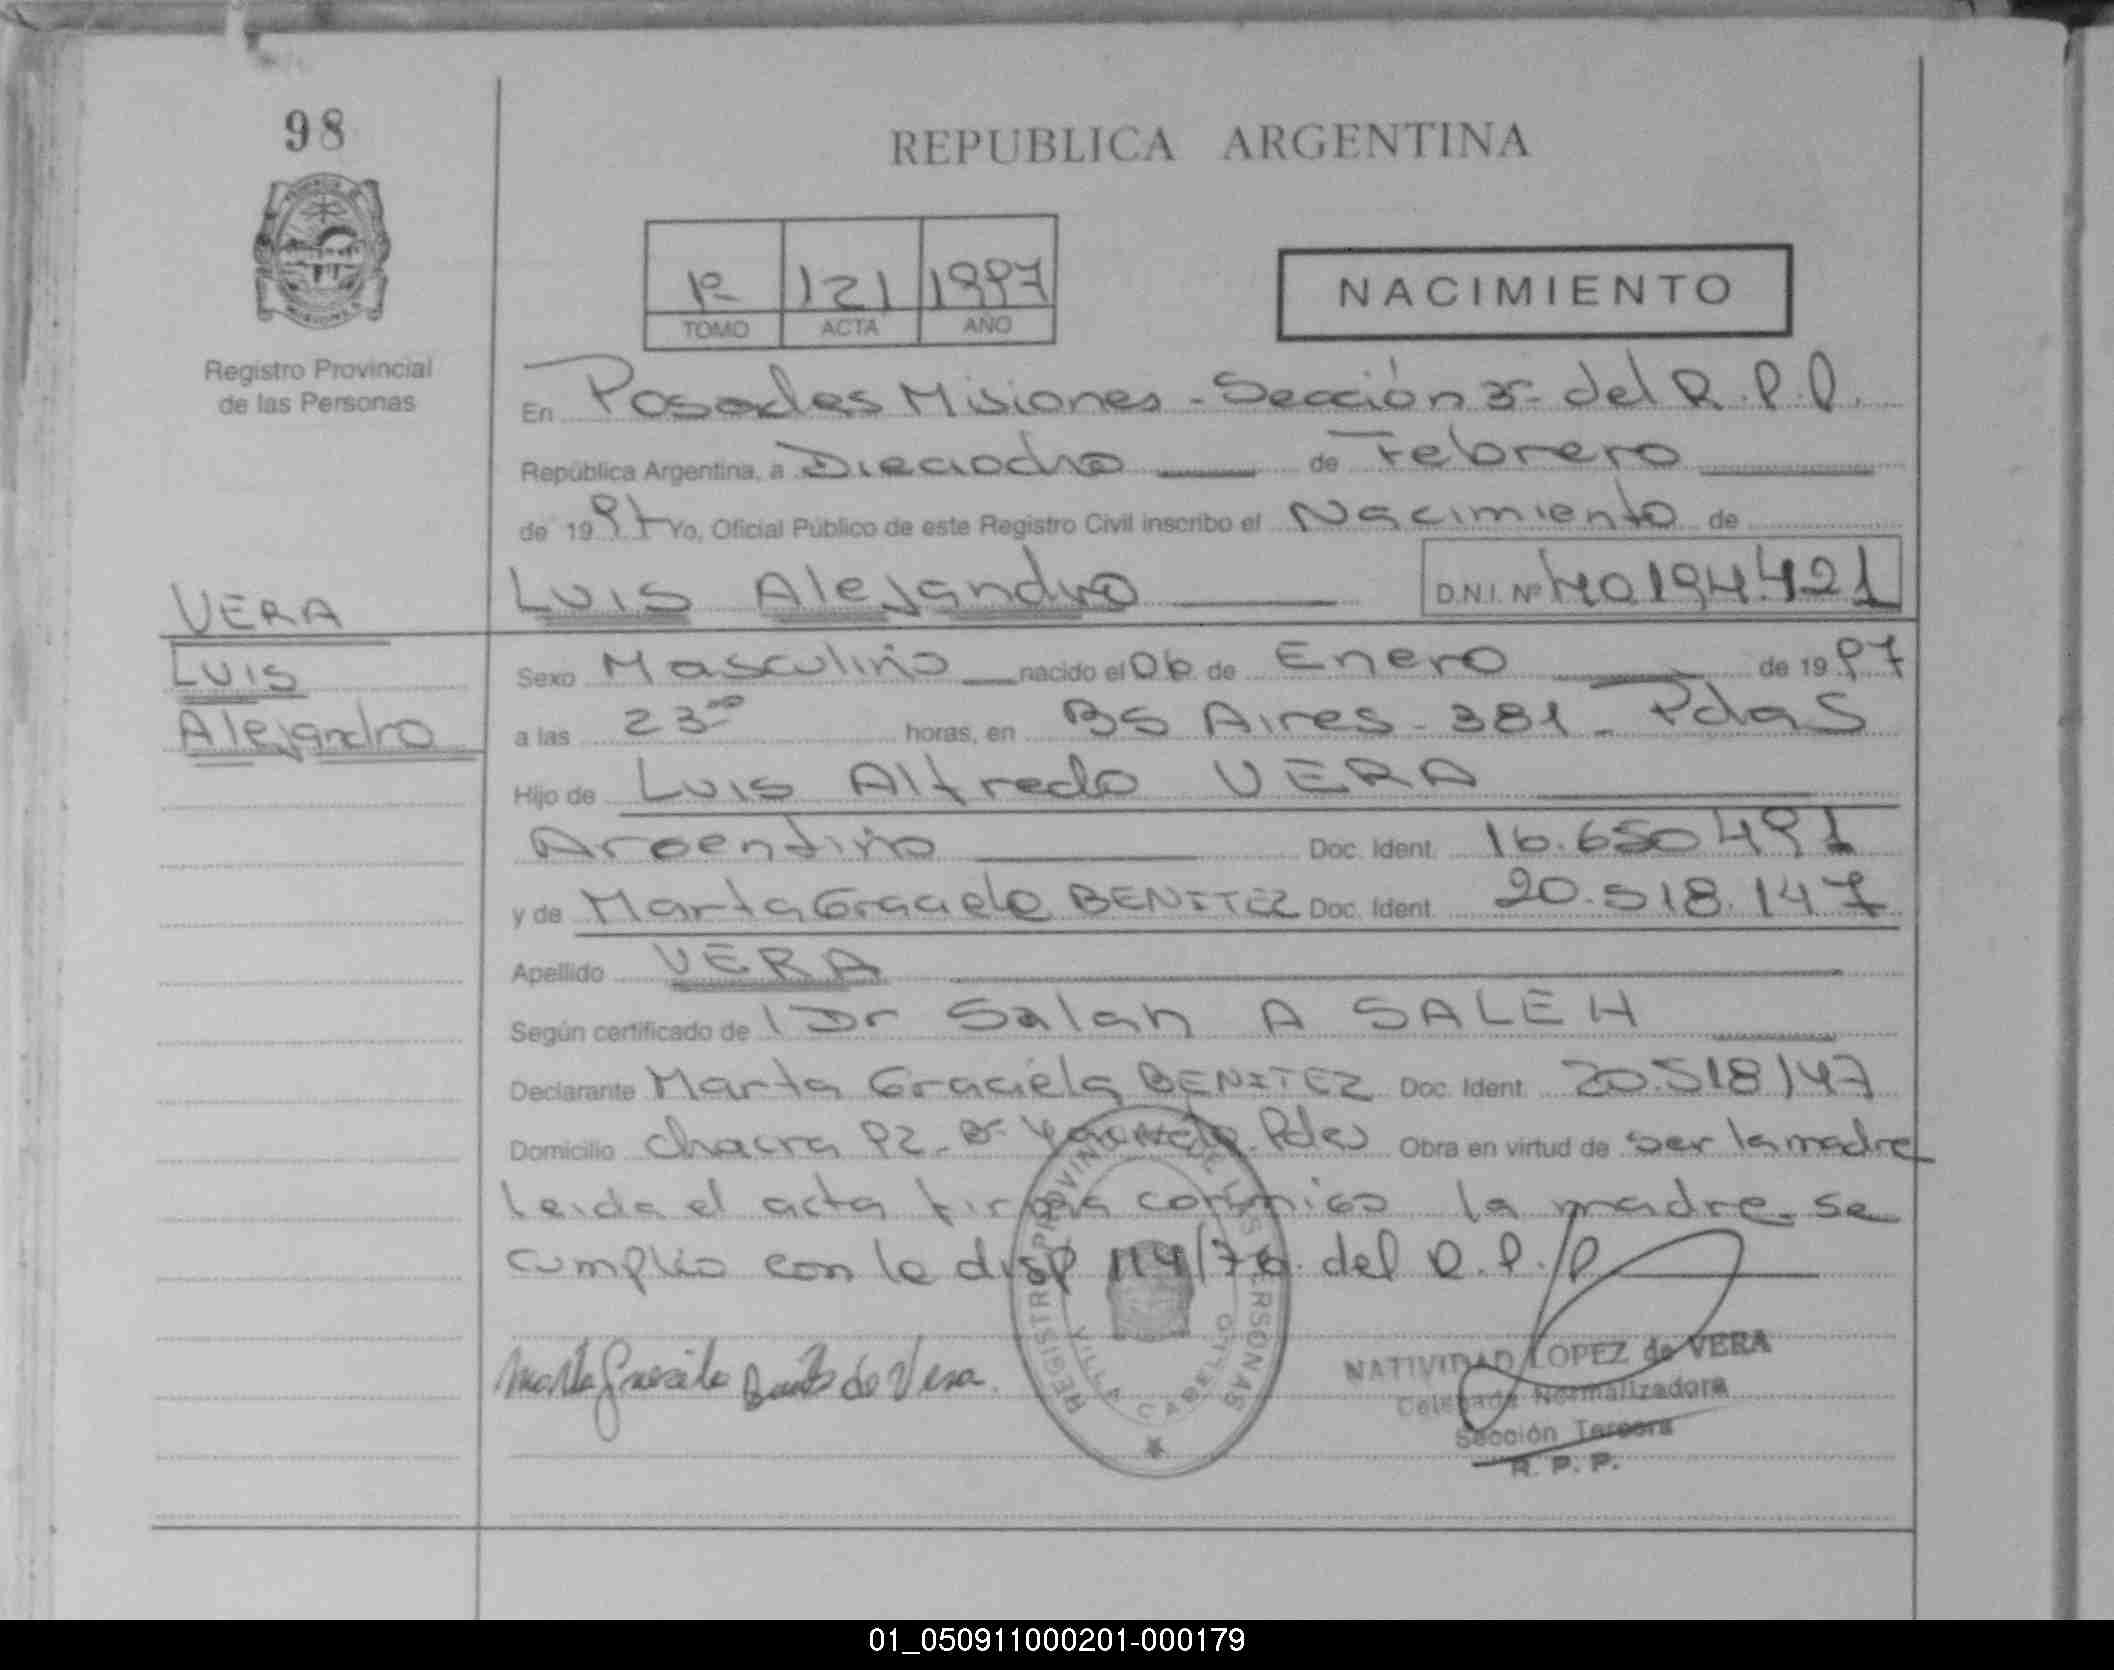 98
REPUBLICA ARGENTINA
1º 121 1997
TOMO ACTA AÑO
NACIMIENTO
Registro Provincial
de las Personas
En Posadas Misiones - Sección 3ª del R.P.P.
República Argentina, a Dieciocho de Febrero
de 1997 Yo, Oficial Público de este Registro Civil inscribo el Nacimiento de
VERA
Luis Alejandro D.N.I. Nº 40.194.421
Luis
Alejandro
Sexo Masculino nacido el 06 de Enero de 1997
a las 23⁰⁰ horas, en BS Aires - 381 - Pdas
Hijo de Luis Alfredo VERA
Argentino Doc. Ident. 16.650.491
y de Marta Graciela BENITEZ Doc. Ident. 20.518.147
Apellido VERA
Según certificado de Dr Salah A SALEH
Declarante Marta Graciela BENITEZ Doc. Ident. 20.518147
Domicilio Chacra 92 - Bº Pdas Obra en virtud de ser la madre
Leida el acta firma conmigo la madre. Se
cumplió con la disp 114/76 del R.P.P.
Marta Graciela Benitez de Vera.
REGISTRO PROVINCIAL DE LAS PERSONAS
VILLA CABELLO
NATIVIDAD LOPEZ de VERA
Delegada Normalizadora
Sección Tercera
R. P. P.
01_050911000201-000179